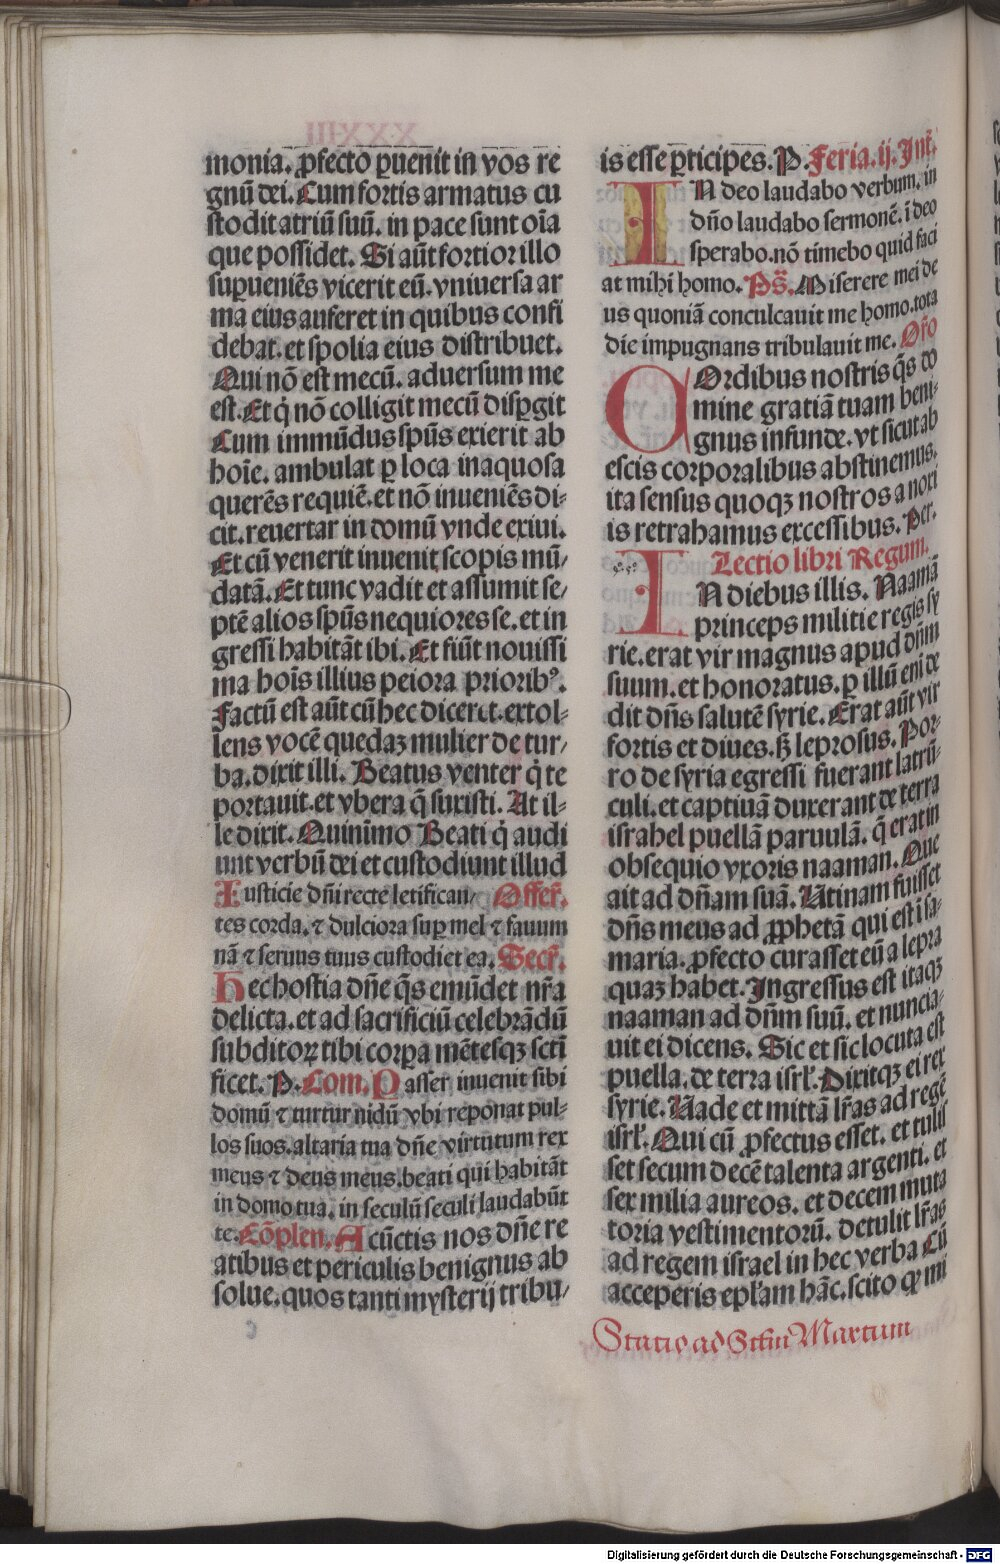 monia. ꝓfecto ꝑuenit in vos re
gnū dei. Cum fortis armatus cu
stodit atriū suū. in pace sunt oīa
que possidet. Si aūt fortior illo
supueniēs vicerit eū. vniuersa ar
ma eius auferet in quibus confi
debat. et spolia eius distribuet.
Qui nō est mecū. aduersum me
est. Et q̇ nō colligit mecū dispgit
Cum immūdus spūs exierit ab
hoīe. ambulat ꝑ loca inaquosa
querēs requiē. et nō inueniēs di⸗
cit. reuertar in domū vnde exiui.
Et cū venerit inuenit scopis mū/
datā. Et tunc vadit et assumit se/
ptē alios spūs nequiores se. et in
gressi habitāt ibi. Et fiūt nouissi
ma hoīs illius peiora prioribꝰ.
Factū est aūt cū hec diceret. extol⸗
lens vocē quedaꝫ mulier de tur/
ba. dixit illi. Beatus venter q̇ te
portauit. et vbera q̄ suxisti. At il⸗
le dixit. Quinīmo Beati q̇ audi
unt verbū dei et custodiunt illud
Iusticie dn̄i recte letifican/ Offer̄.
tes corda. ⁊ dulciora suꝑ mel ⁊ fauum
nā ⁊ seruus tuus custodiet ea. Secr̄.
Hec hostia dn̄e q̄s emūdet nr̄a
delicta. et ad sacrificiū celebrādū
subditoꝝ tibi corpa mētesqꝫ sctī
ficet. P. Com. Passer inuenit sibi
domū ⁊ turtur nidū vbi reponat pul⸗
los suos. altaria tua dn̄e virtutum rex
meus ⁊ deus meus. beati qui habitāt
in domo tua. in seculū seculi laudabūt
te. Cōplen. A cūctis nos dn̄e re
atibus et periculis benignus ab
solue. quos tanti mysterij tribu/
is esse ꝑticipes. P. Feria. ij. Int̄.
IN deo laudabo verbum. in
dn̄o laudabo sermonē. ī deo
sperabo. nō timebo quid faci
at mihi homo. Ps̄. Miserere mei de
us quoniā conculcauit me homo. tota
die impugnans tribulauit me. Or̄o
COrdibus nostris q̄s do
mine gratiā tuam beni⸗
gnus infunde. vt sicut ab
escis corporalibus abstinemus.
ita sensus quoqꝫ nostros a noxi
is retrahamus excessibus. Per.
Lectio libri Regum.
IN diebus illis. Naamā
princeps militie regis sy
rie. erat vir magnus apud dn̄m
suum. et honoratus. ꝑ illū enī de
dit dn̄s salutē syrie. Erat aūt vir
fortis et diues. sꝫ leprosus. Por⸗
ro de syria egressi fuerant latrū⸗
culi. et captiuā duxerant de terra
israhel puellā paruulā. q̄ erat in
obsequio vxoris naaman. Que
ait ad dn̄am suā. Utinam fuisset
dn̄s meus ad ꝓphetā qui est ī sa⸗
maria. ꝓfecto curasset eū a lepra
quaꝫ habet. Ingressus est itaqꝫ
naaman ad dn̄m suū. et nuncia⸗
uit ei dicens. Sic et sic locuta est
puella. de terra isrl̄. Dixitqꝫ ei rex
syrie. Uade et mittā lr̄as ad regē
isrl̄. Qui cū ꝓfectus esset. et tulis
set secum decē talenta argenti. et
sex milia aureos. et decem muta
toria vestimentorū. detulit lr̄as
ad regem israel in hec verba Cū
acceperis epl̄am hāc. scito qꝫ mi
Statio ad Martum
Digitalisierung gefördert durch die Deutsche Forschungsgemeinschaft - DFG